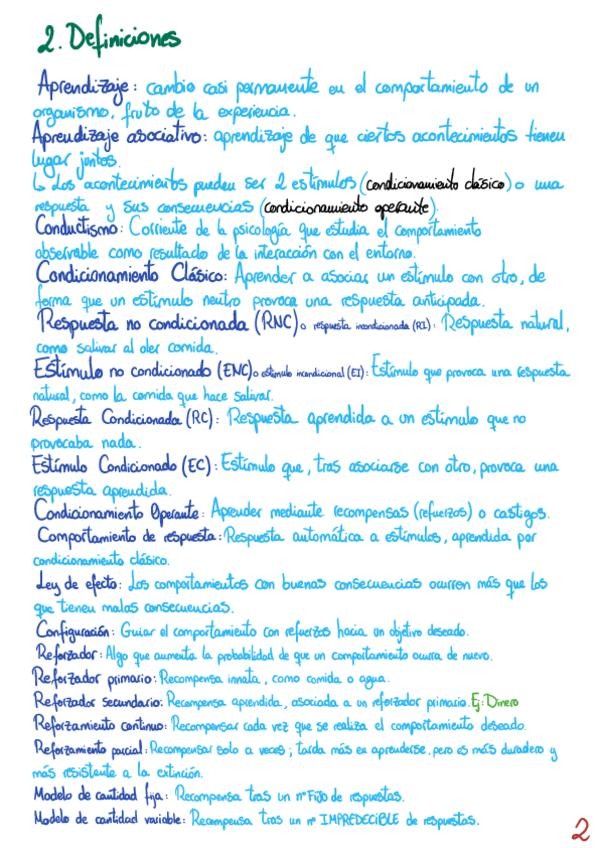 2. Definiciones
Aprendizaje: cambio casi permanente en el comportamiento de un
organismo, fruto de la experiencia.
Aprendizaje asociativo: aprendizaje de que ciertos acontecimientos tienen
lugar juntos.
↳ Los acontecimientos pueden ser 2 estímulos (condicionamiento clásico) o una
respuesta y sus consecuencias (condicionamiento operante).
Conductismo: Corriente de la psicología que estudia el comportamiento
observable como resultado de la interacción con el entorno.
Condicionamiento Clásico: Aprender a asociar un estímulo con otro, de
forma que un estímulo neutro provoca una respuesta anticipada.
Respuesta no condicionada (RNC) o respuesta incondicionada (RI): Respuesta natural,
como salivar al oler comida.
Estímulo no condicionado (ENC) o estímulo incondicional (EI): Estímulo que provoca una respuesta
natural, como la comida que hace salivar.
Respuesta Condicionada (RC): Respuesta aprendida a un estímulo que no
provocaba nada.
Estímulo Condicionado (EC): Estímulo que, tras asociarse con otro, provoca una
respuesta aprendida.
Condicionamiento Operante: Aprender mediante recompensas (refuerzos) o castigos.
Comportamiento de respuesta: Respuesta automática a estímulos, aprendida por
condicionamiento clásico.
Ley de efecto: Los comportamientos con buenas consecuencias ocurren más que los
que tienen malas consecuencias.
Configuración: Guiar el comportamiento con refuerzos hacia un objetivo deseado.
Reforzador: Algo que aumenta la probabilidad de que un comportamiento ocurra de nuevo.
Reforzador primario: Recompensa innata, como comida o agua.
Reforzador secundario: Recompensa aprendida, asociada a un reforzador primario. Ej: Dinero
Reforzamiento continuo: Recompensar cada vez que se realiza el comportamiento deseado.
Reforzamiento parcial: Recompensar solo a veces; tarda más en aprenderse, pero es más duradero y
más resistente a la extinción.
Modelo de cantidad fija: Recompensa tras un nº FIJO de respuestas.
Modelo de cantidad variable: Recompensa tras un nº IMPREDECIBLE de respuestas.
2